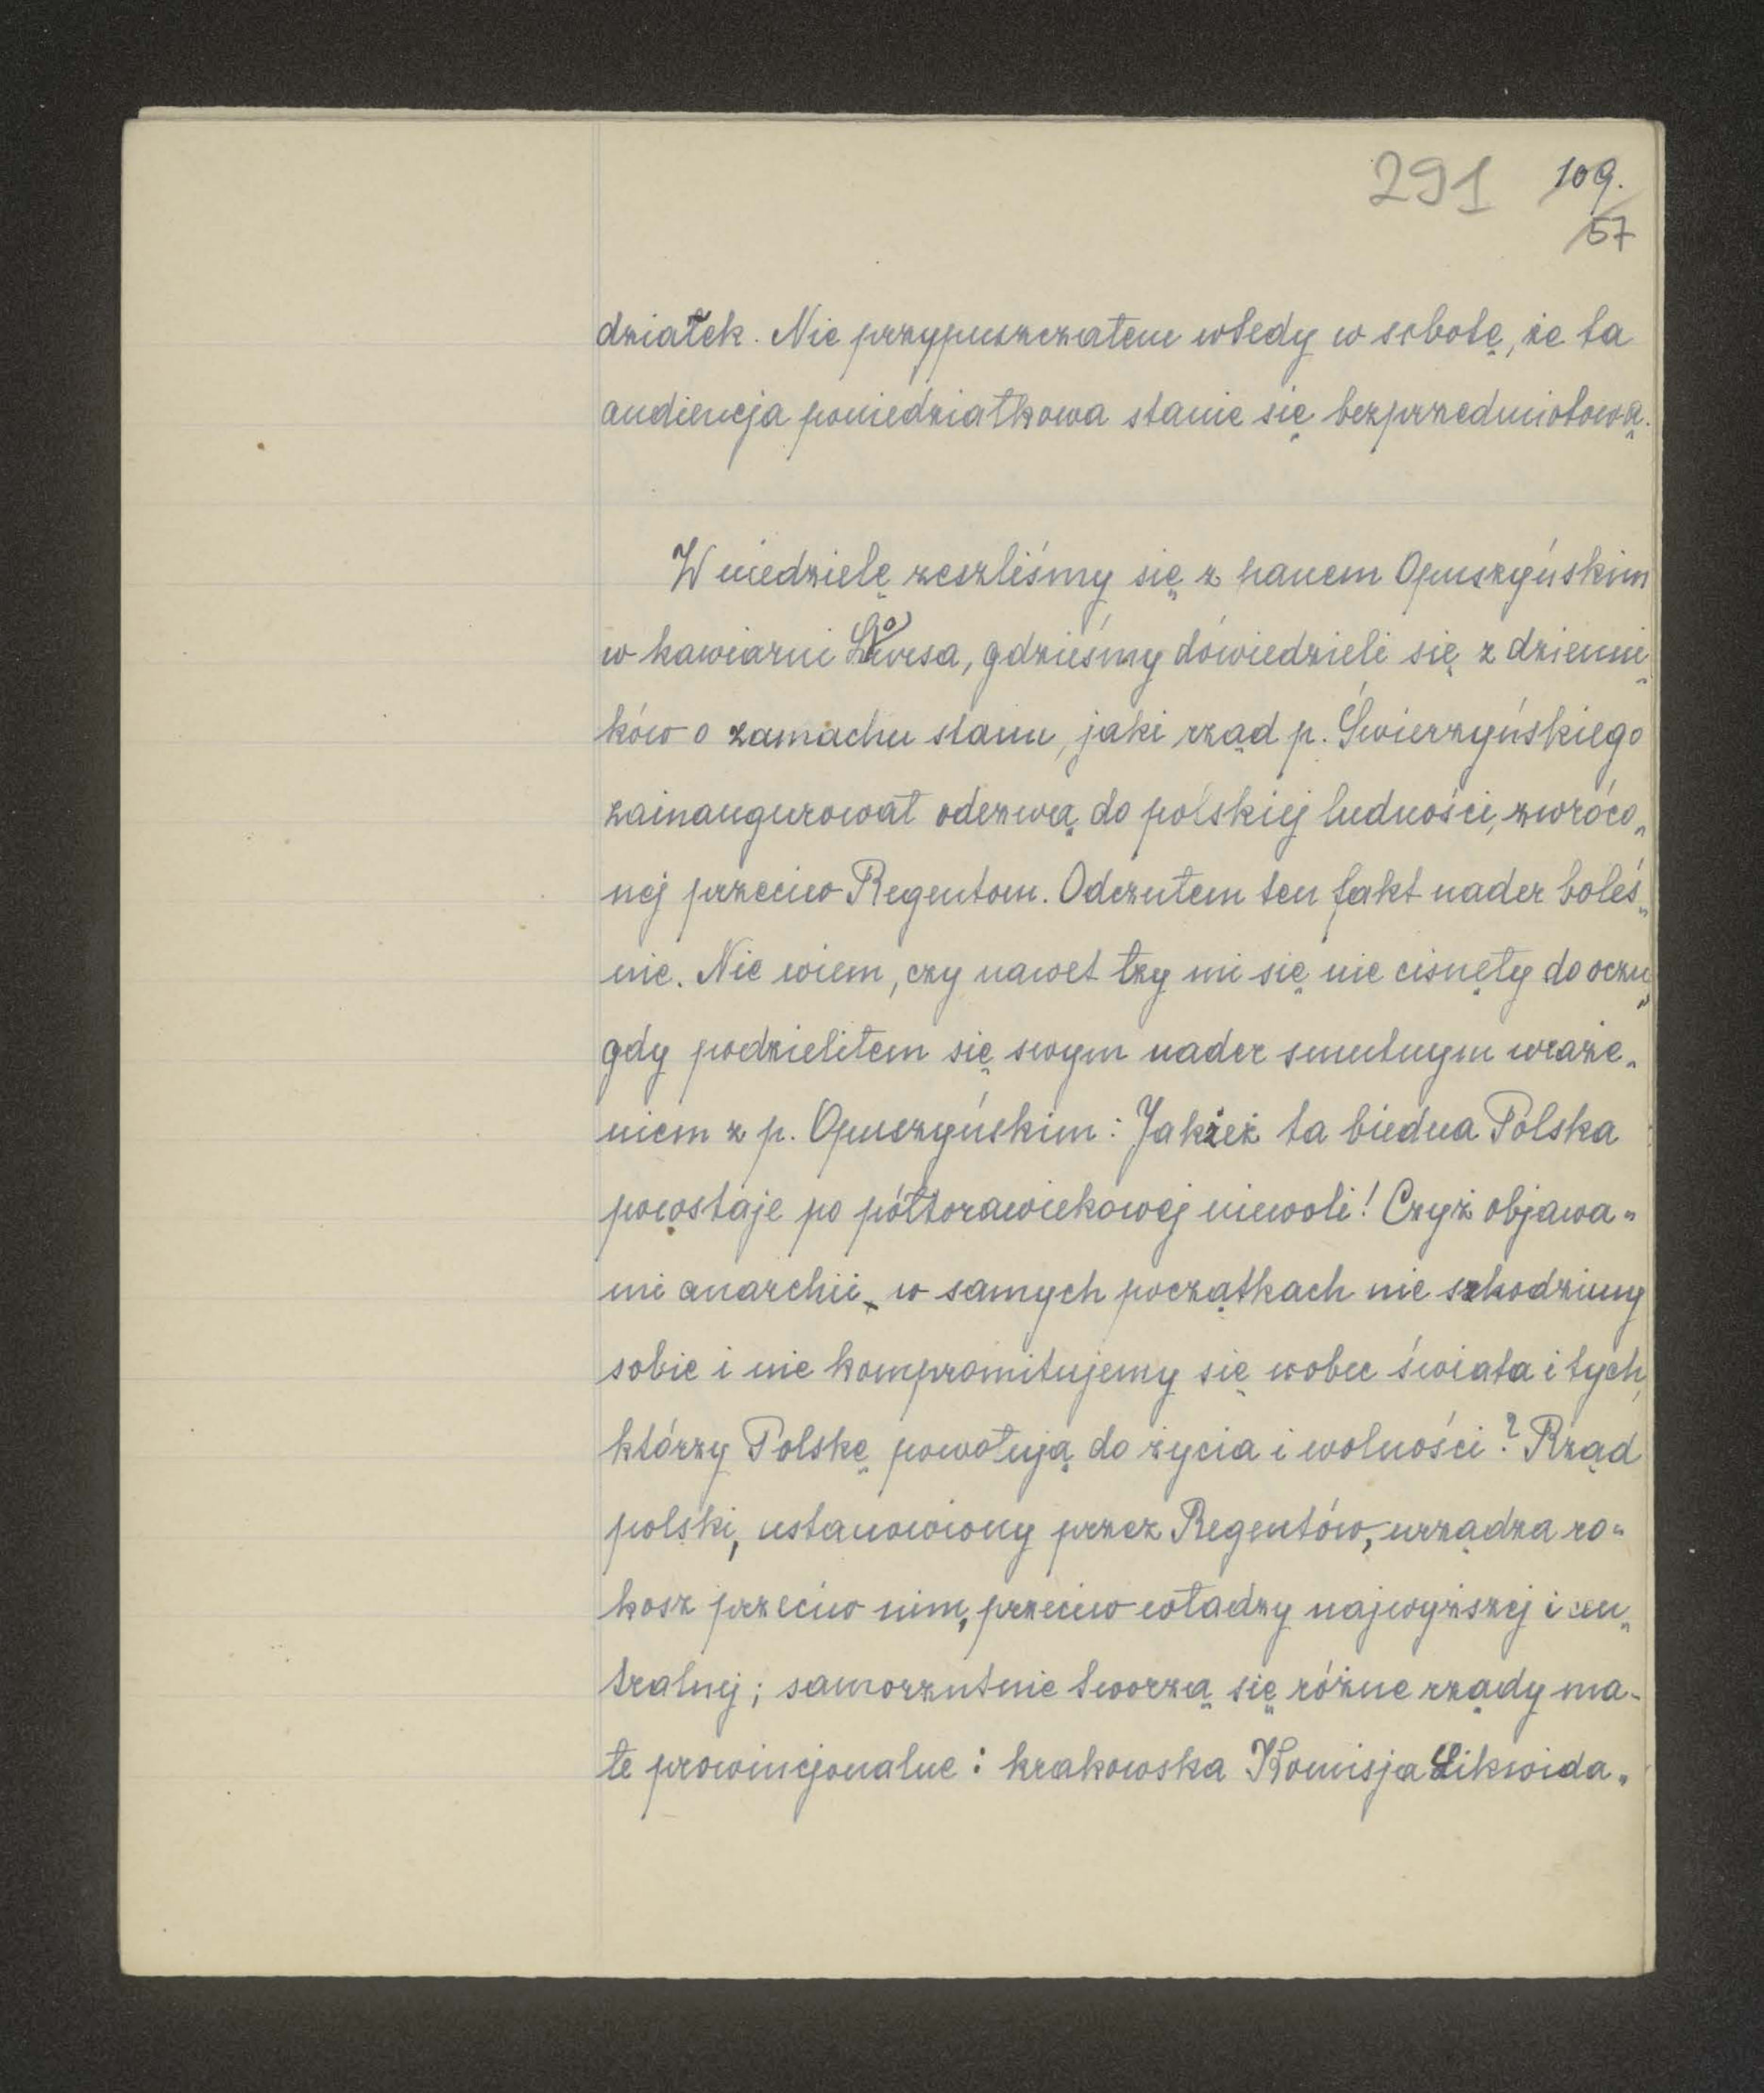 291 109.
57
działek. Nie przypuszczałem wtedy w sobotę, że ta
audiencja poniedziałkowa stanie się bezprzedmiotową.
W niedzielę zeszliśmy się z panem Opuszyńskim
w kawiarni Loursa, gdzieśmy dowiedzieli się z dzienni„
ków o zamachu stanu, jaki rząd p. Świerzyńskiego
zainaugurował odezwą do polskiej ludności, zwróco„
nej przeciw Regentom. Odczułem ten fakt nader boleś„
nie. Nie wiem, czy nawet łzy mi się nie cisnęły do oczu,
gdy podzieliłem się swym nader smutnym wraże„
niem z p. Opuszyńskim: Jakżeż ta biedna Polska
powstaje po półtorawiekowej niewoli! Czyż objawa„
mi anarchii w samych początkach nie szkodzimy
sobie i nie kompromitujemy się wobec świata i tych,
którzy Polskę powołują do życia i wolności? Rząd
polski, ustanowiony przez Regentów, urządza ro„
kosz przeciw nim, przeciw władzy najwyższej i cen„
tralnej; samorzutnie tworzą się różne rządy ma-
łe prowincjonalne: krakowska Komisja Likwida„